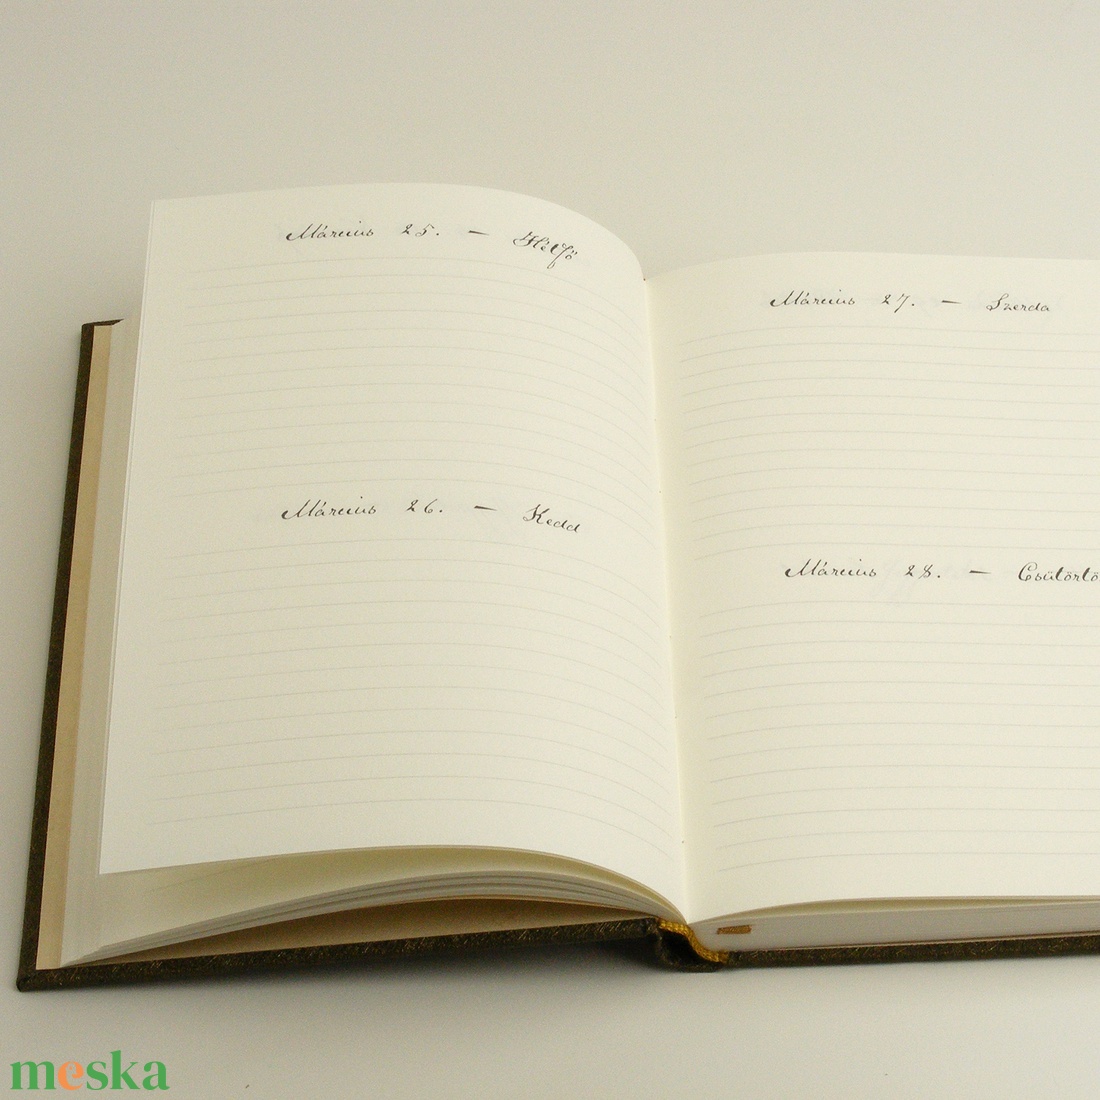 Március 25. — Hétfő
Március 26. — Kedd
Március 27. — Szerda
Március 28. — Csütörtö
meska